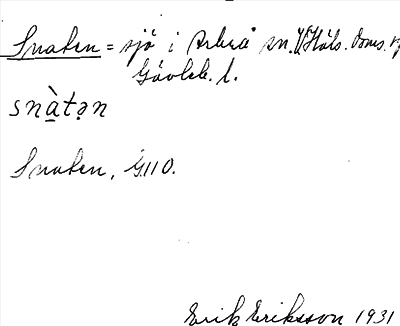 Snaten = sjö i Arbrå sn. V. Häls. doms.
Gävleb. l.
snàtən
Snaten, G.110.
Erik Eriksson 1931